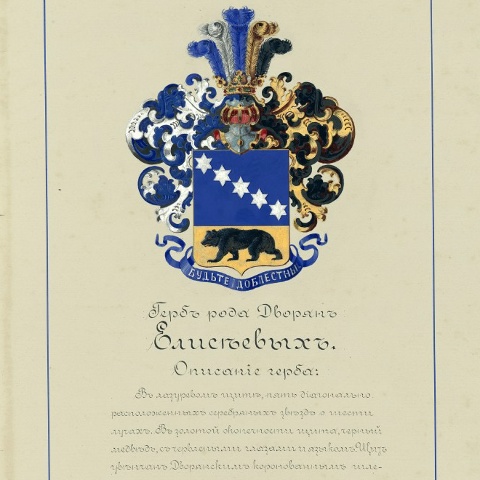 БУДЬТЕ ДОБЛЕСТНЫ
Гербъ рода Дворянъ
Елисѣевыхъ.
Описаніе герба:
Въ лазуревомъ щитѣ, пять діагонально
расположенныхъ серебряныхъ звѣздъ о шести
лучахъ. Въ золотой оконечности щита, черный
медвѣдь, съ червлеными глазами и языкомъ. Щитъ
увѣнчанъ Дворянскимъ коронованнымъ шле-